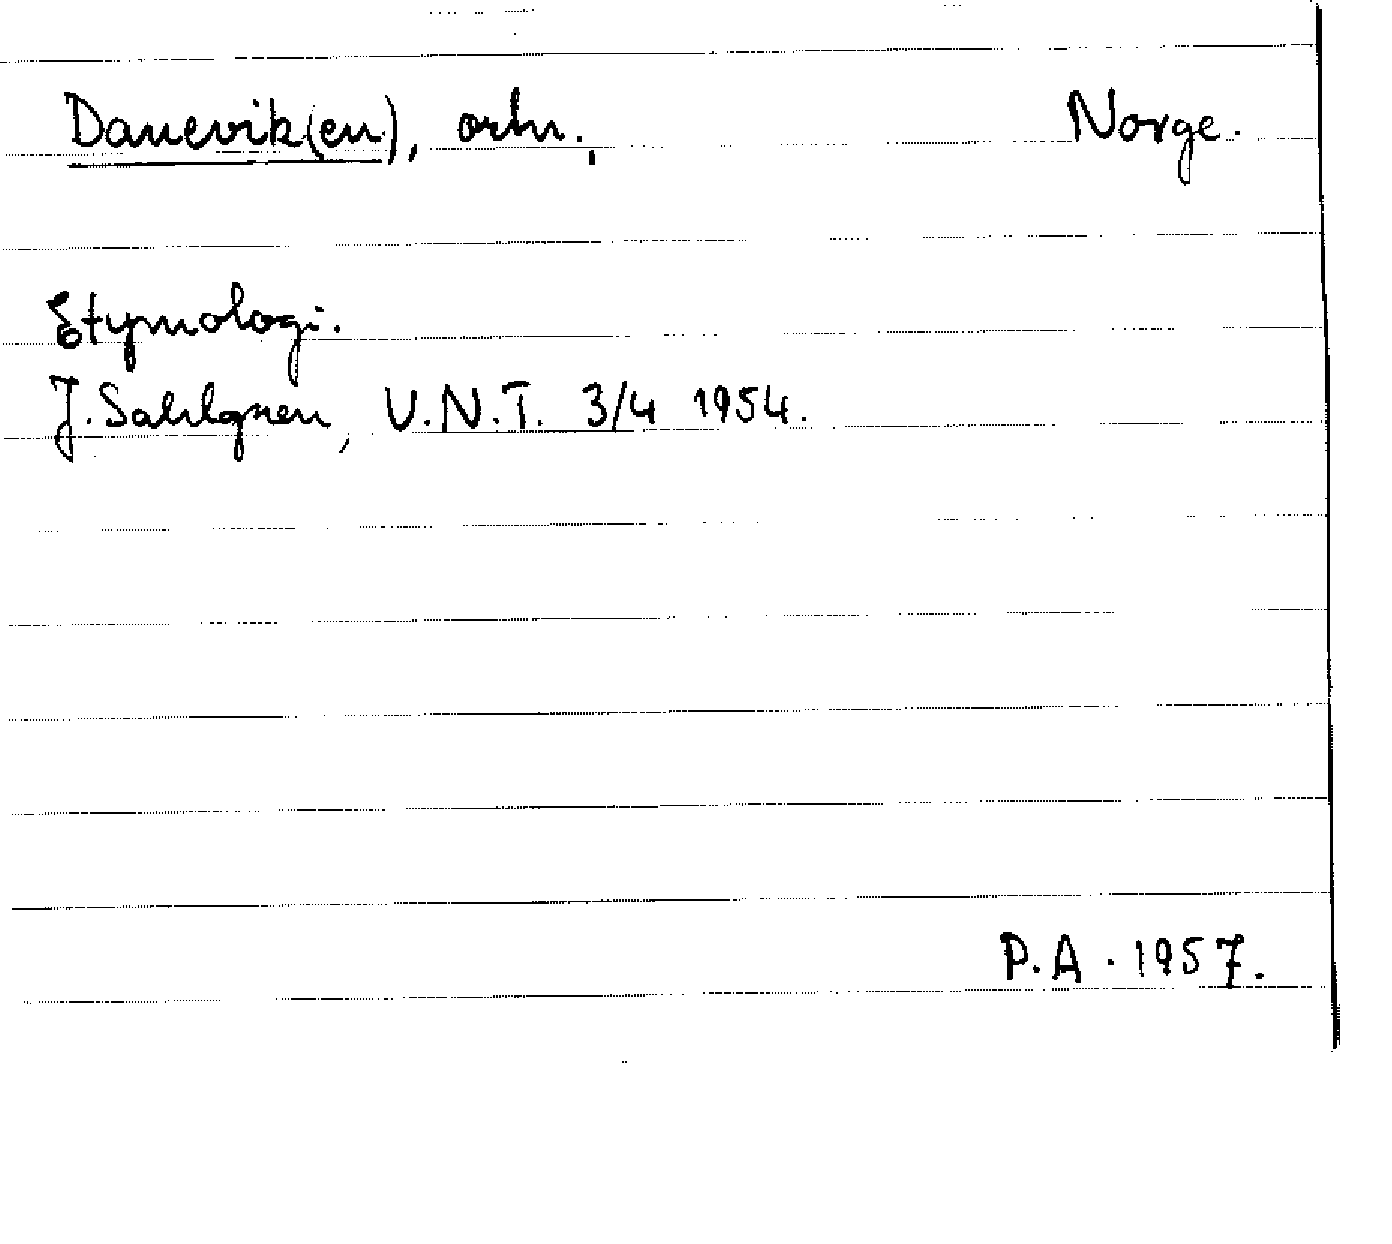 Danevik(en), ortn., Norge.
Etymologi.
J. Sahlgren, U.N.T. 3/4 1954.
P.A. 1957.